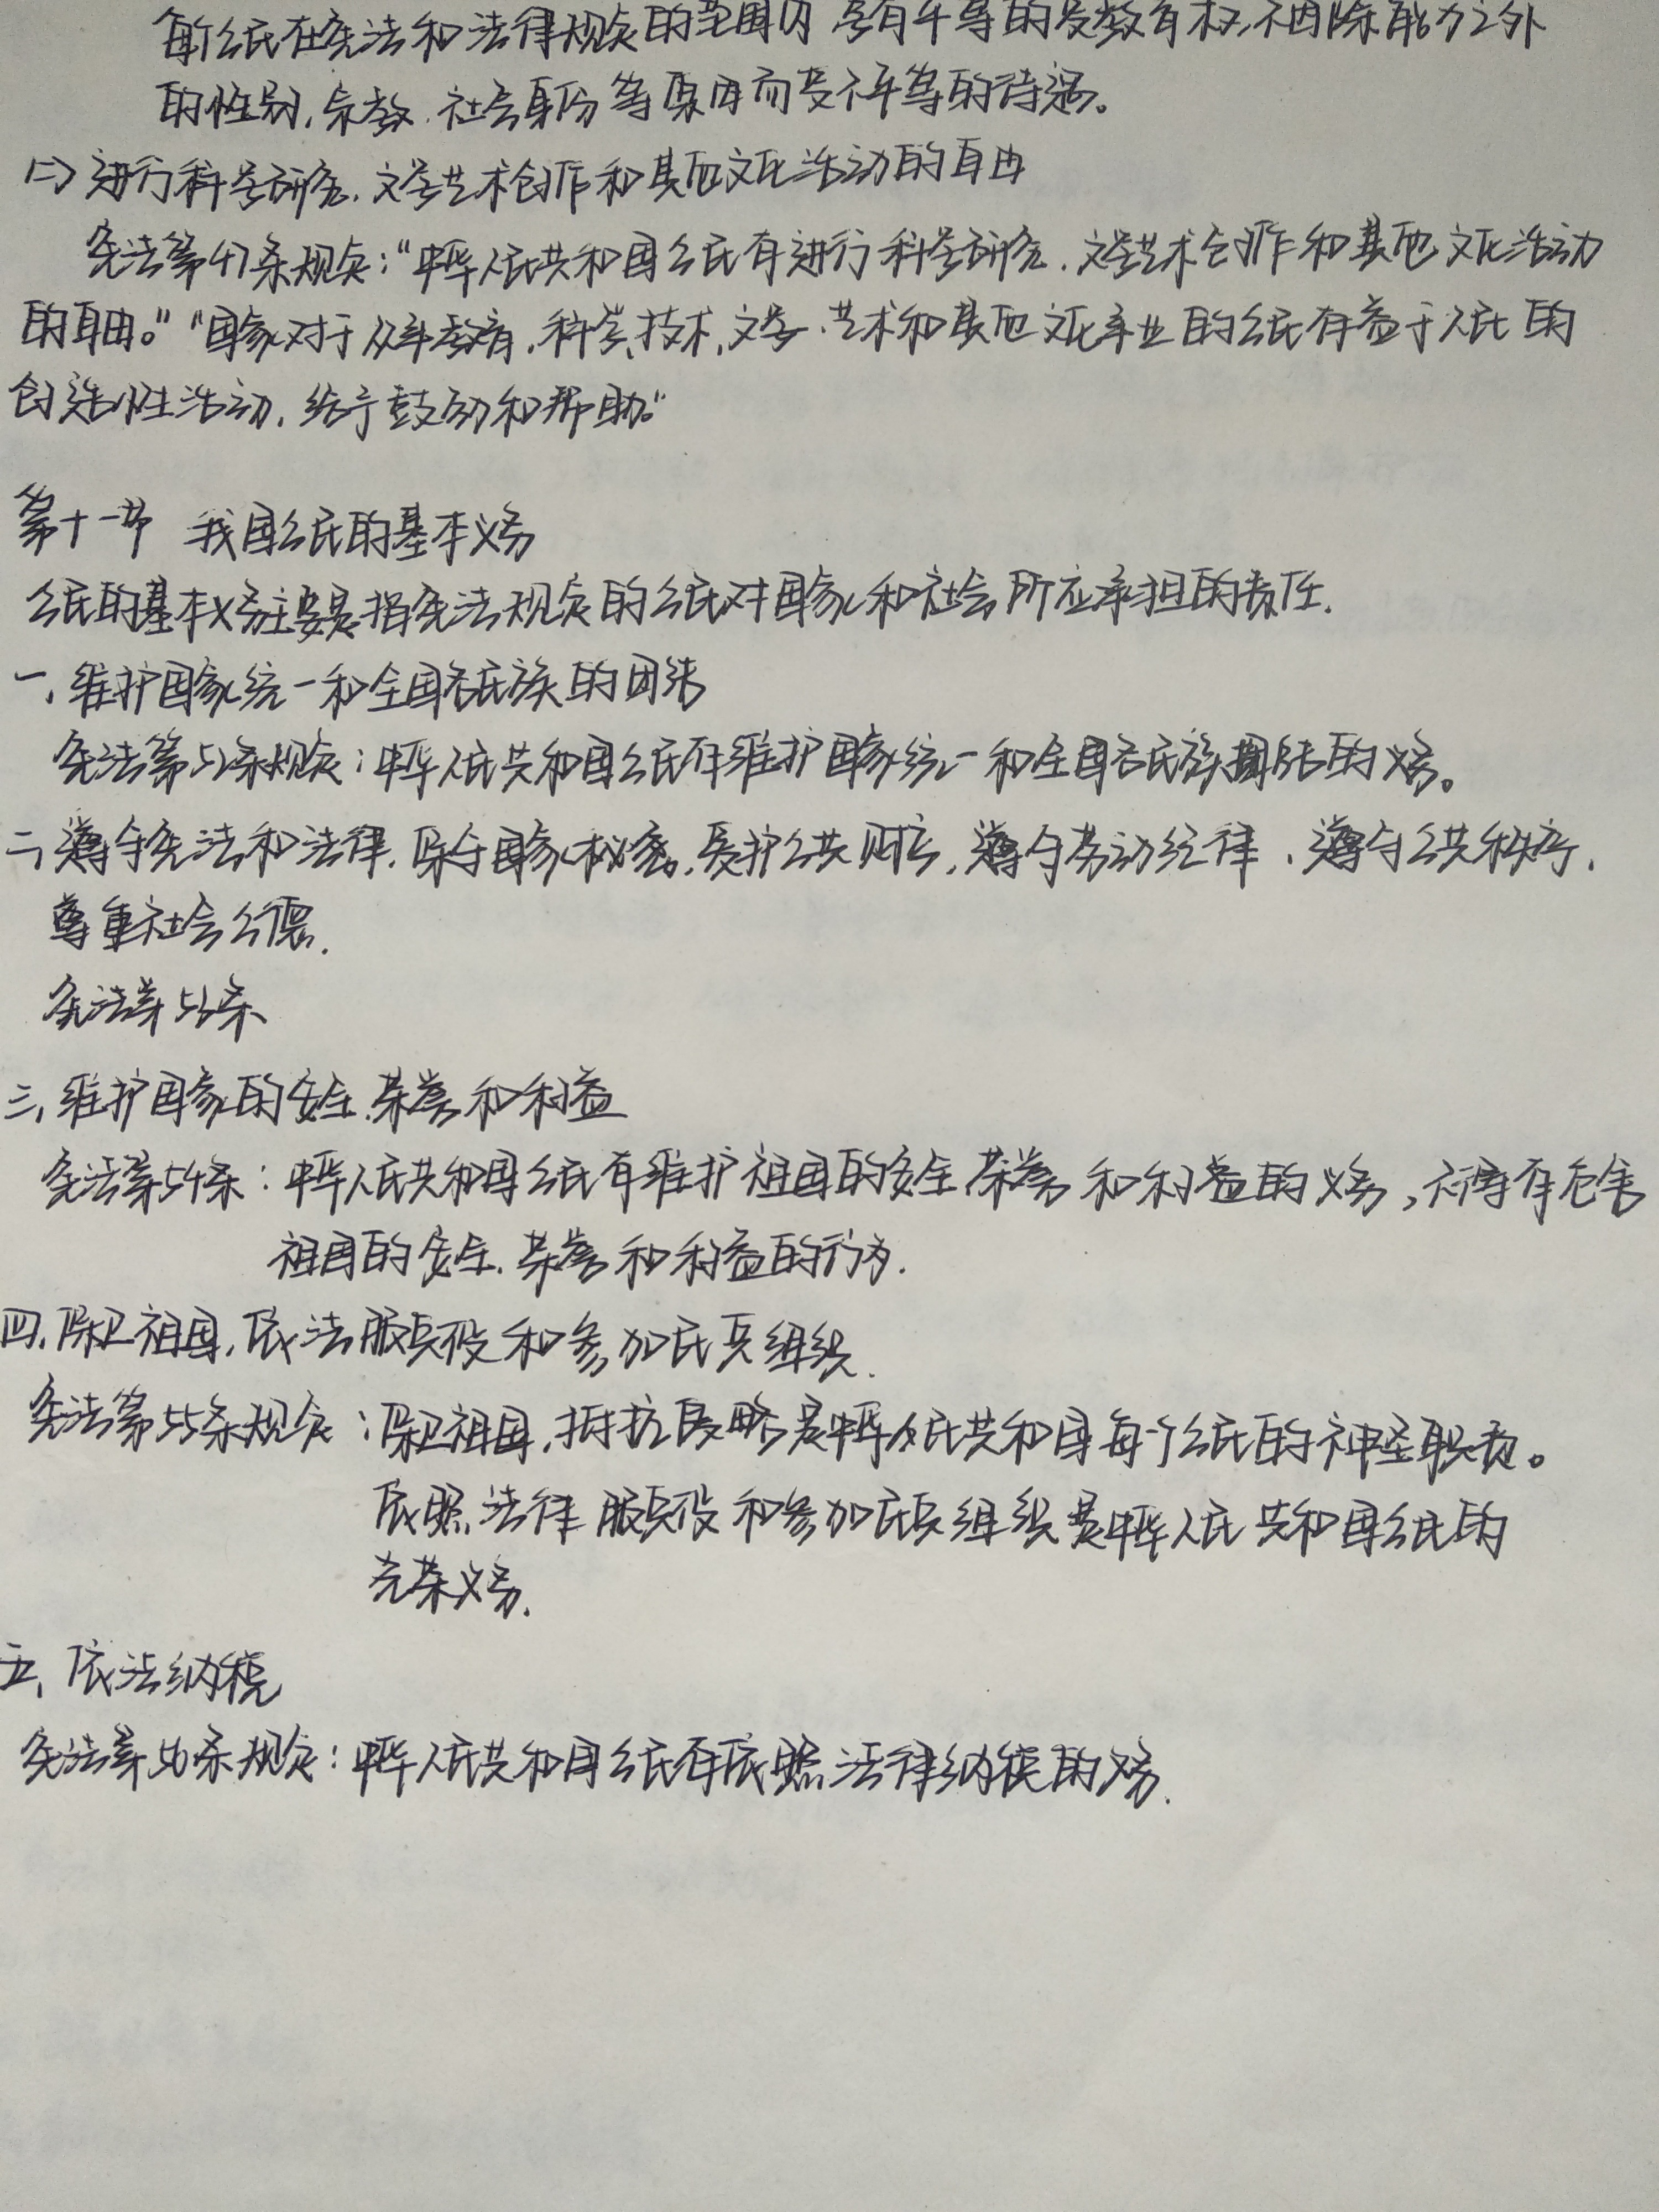 每个公民在宪法和法律规定的范围内享有平等的受教育权,不因除能力之外
的性别,宗教、社会身份等原因而受不平等的待遇。
(二)进行科学研究、文学艺术创作和其他文化活动的自由
宪法第47条规定:“中华人民共和国公民有进行科学研究、文学艺术创作和其他文化活动
的自由。”“国家对于从事教育、科学、技术、文学、艺术和其他文化事业的公民有益于人民的
创造性活动,给予鼓励和帮助。”
第十一节 我国公民的基本义务
公民的基本义务主要是指宪法规定的公民对国家和社会所应承担的责任.
一、维护国家统一和全国各民族的团结
宪法第52条规定:中华人民共和国公民有维护国家统一和全国各民族团结的义务。
二、遵守宪法和法律,保守国家秘密,爱护公共财产,遵守劳动纪律、遵守公共秩序,
尊重社会公德.
宪法第53条、
三、维护国家的安全、荣誉和利益
宪法第54条:中华人民共和国公民有维护祖国的安全、荣誉和利益的义务,不得有危害
祖国的安全、荣誉和利益的行为.
四、保卫祖国,依法服兵役和参加民兵组织.
宪法第55条规定:保卫祖国,抵抗侵略是中华人民共和国每个公民的神圣职责。
依照法律服兵役和参加民兵组织是中华人民共和国公民的
光荣义务.
五、依法纳税
宪法第56条规定:中华人民共和国公民有依照法律纳税的义务.